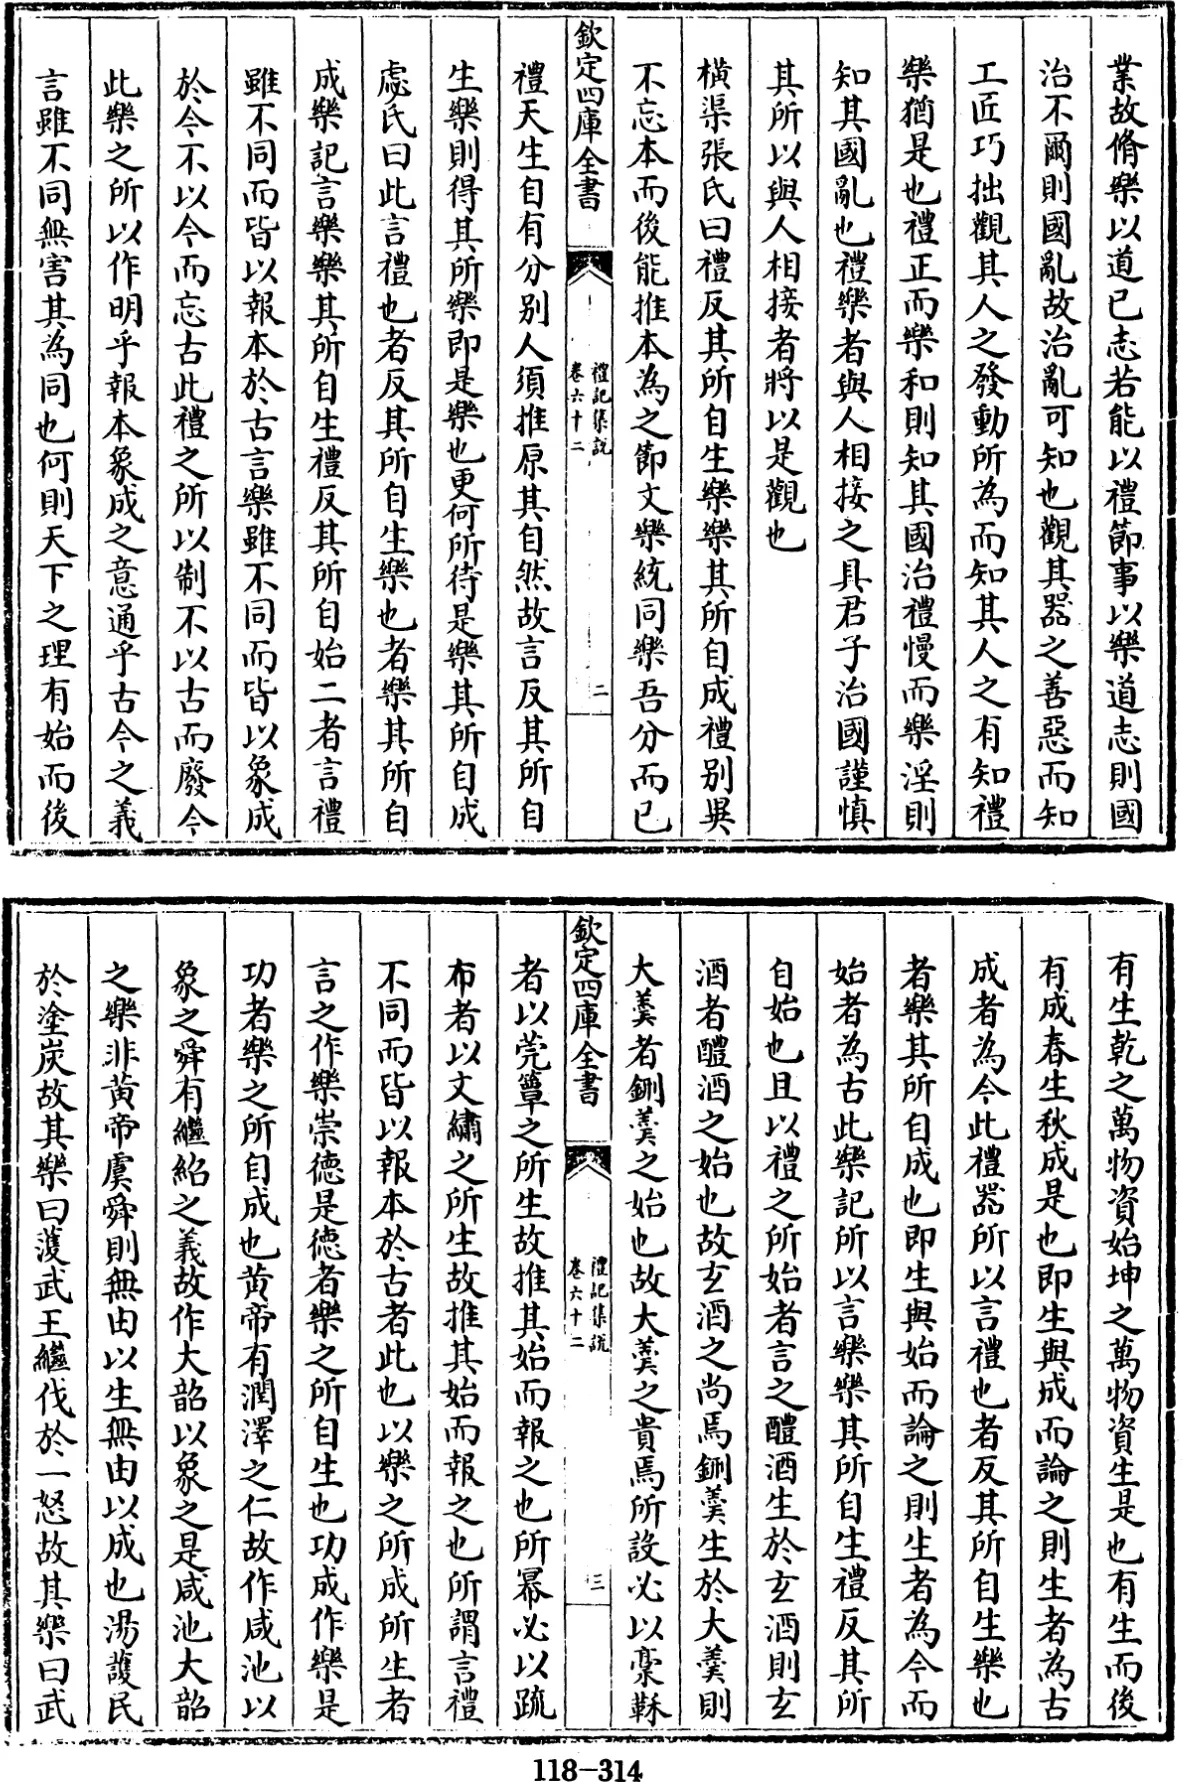 業故脩樂以道已志若能以禮節事以樂道志則國
治不爾則國亂故治亂可知也觀其器之善惡而知
工匠巧拙觀其人之發動所為而知其人之有知禮
樂猶是也禮正而樂和則知其國治禮慢而樂淫則
知其國亂也禮樂者與人相接之具君子治國謹慎
其所以與人相接者將以是觀也
橫渠張氏曰禮反其所自生樂樂其所自成禮別異
不忘本而後能推本為之節文樂統同樂吾分而已
欽定四庫全書
禮記集說
卷六十二
二
禮天生自有分別人須推原其自然故言反其所自
生樂則得其所樂即是樂也更何所待是樂其所自成
慮氏曰此言禮也者反其所自生樂也者樂其所自
成樂記言樂樂其所自生禮反其所自始二者言禮
雖不同而皆以報本於古言樂雖不同而皆以象成
於今不以今而忘古此禮之所以制不以古而廢今
此樂之所以作明乎報本象成之意通乎古今之義
言雖不同無害其為同也何則天下之理有始而後
有生乾之萬物資始坤之萬物資生是也有生而後
有成春生秋成是也即生與成而論之則生者為古
成者為今此禮器所以言禮也者反其所自生樂也
者樂其所自成也即生與始而論之則生者為今而
始者為古此樂記所以言樂樂其所自生禮反其所
自始也且以禮之所始者言之醴酒生於玄酒則玄
酒者醴酒之始也故玄酒之尚焉鉶羹生於大羹則
大羹者鉶羹之始也故大羹之貴焉所設必以稾鞂
欽定四庫全書
禮記集說
卷六十二
三
者以莞簟之所生故推其始而報之也所冪必以疏
布者以文繡之所生故推其始而報之也所謂言禮
不同而皆以報本於古者此也以樂之所成所生者
言之作樂崇德是德者樂之所自生也功成作樂是
功者樂之所自成也黃帝有潤澤之仁故作咸池以
象之舜有繼紹之義故作大韶以象之是咸池大韶
之樂非黃帝虞舜則無由以生無由以成也湯護民
於塗炭故其樂曰濩武王繼伐於一怒故其樂曰武
118-314